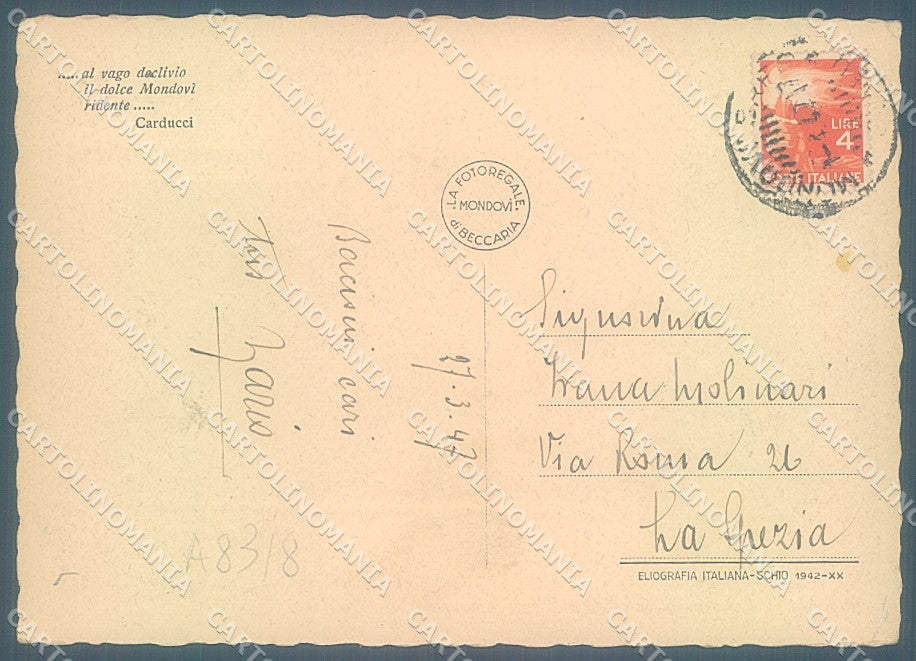 ..... al vago declivio
il dolce Mondovì
ridente .....
Carducci
LIRE
4
ITALIANE
MONDOVI
LA FOTOREGALE
MONDOVÌ
di BECCARIA
27.3.47
Bacissimi cari
Tuo
Signorina
Molinari
Via Roma 21
La Spezia
ELIOGRAFIA ITALIANA-SCHIO 1942-XX
A83/8
CARTOLINOMANIA